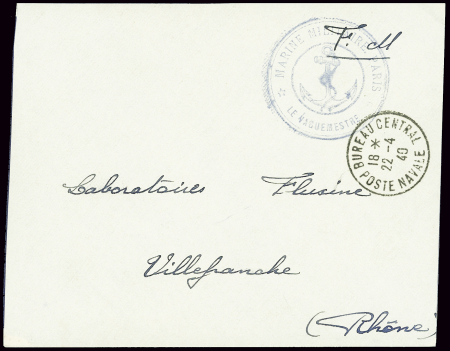 F. M
MARINE MILITAIRE PARIS
LE VAGUEMESTRE
BUREAU CENTRAL
18 *
22 - 4
40
POSTE NAVALE
Laboratoires Flusine
Villefranche
(Rhône)